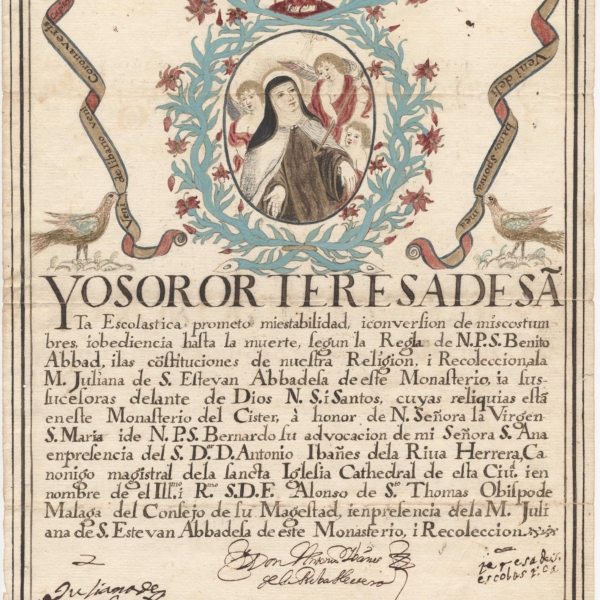 Coronaveris
de libano veni
veni
Veni deli
bano Sponsa
mea
YOSOROR TERESADESÃ
Ta Escolastica prometo miestabilidad, iconversion de miscostum
bres, iobediencia hasta la muerte, segun la Regla de N.P.S. Benito
Abbad, ilas cõstituciones de nuestra Religion, i Recoleccion, ala
M. Juliana de S. Estevan Abbadesa de este Monasterio, ia sus-
sucesoras delante de Dios N. S. i Santos, cuyas reliquias estã
en este Monasterio del Cister, à honor de N. Señora la Virgen
S. Maria i de N. P. S. Bernardo su advocacion de mi Señora S. Ana
enpresencia del S. Dr. D. Antonio Ibañes dela Riua Herrera, Ca
nonigo magistral dela sancta Iglesia Cathedral de esta Ciud. i en
nombre de el Illmo. i Rmo. S. D. F. Alonso de Sto. Thomas Obispo de
Malaga del Consejo de su Magestad, ienpresencia dela M. Juli
ana de S. Estevan Abbadesa de este Monasterio, i Recoleccion
Don Antonio Ibañes
de la Riba Herrera
teresa de s.
escolastica
Juliana de